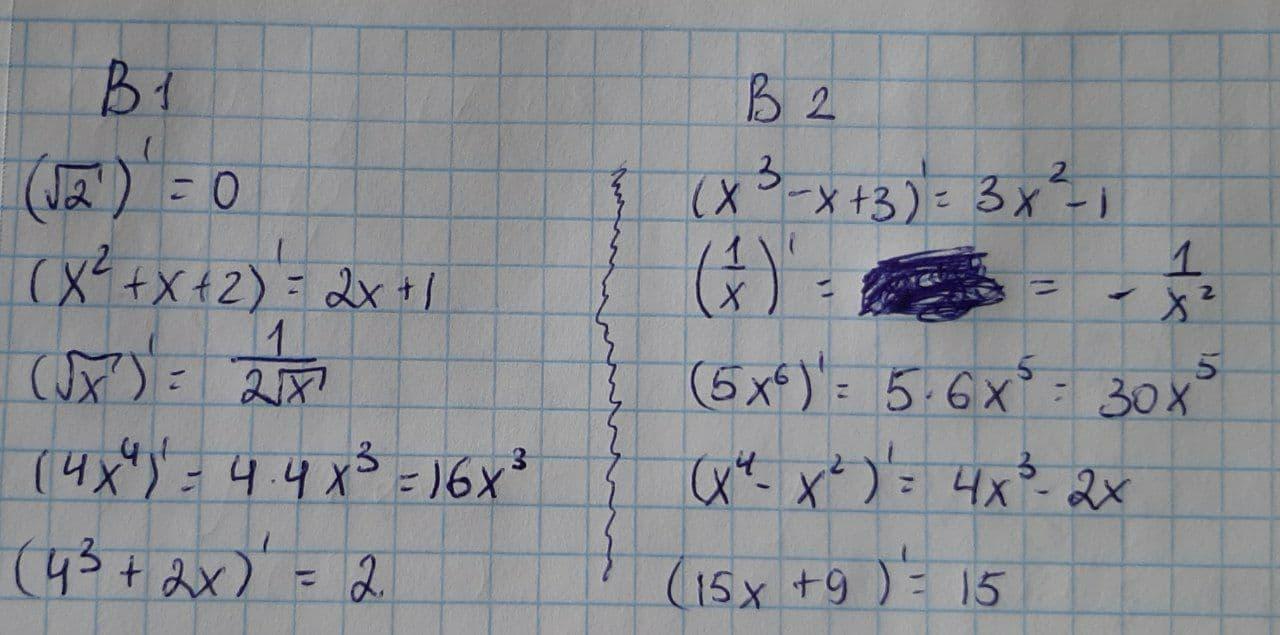 В1
(√2)' = 0
(x² + x + 2)' = 2x + 1
(√x)' = 1/(2√x)
(4x⁴)' = 4·4x³ = 16x³
(4³ + 2x)' = 2
В2
(x³ - x + 3)' = 3x² - 1
(1/x)' = = - 1/x²
(5x⁶)' = 5·6x⁵ = 30x⁵
(x⁴ - x²)' = 4x³ - 2x
(15x + 9)' = 15